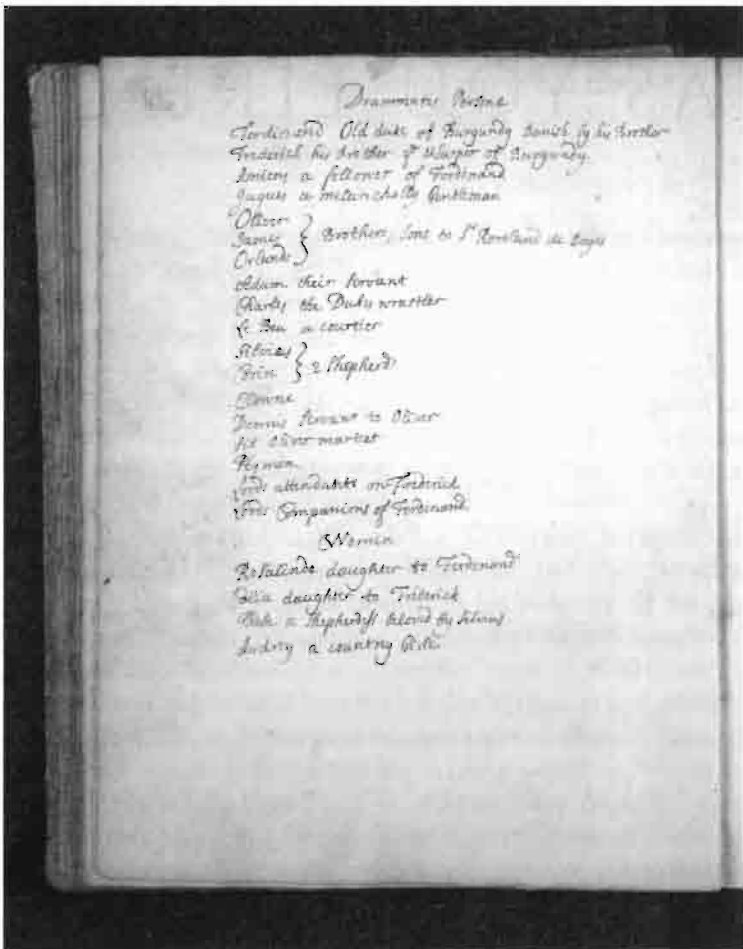 Drammatis Personæ
Ferdinand Old duke of Burgundy banish by his brother
Frederick his brother yᵉ usurper of Burgundy.
Amiens a follower of Ferdinand
Jaques a melancholly Gentleman
Oliver
James } Brothers, sons to Sʳ Rowland de Boys
Orlando
Adam their servant
Charles the Dukes wrastler
Le Beu a courtier
Silvius
Corin } 2 Shepherds
Clowne
Dennis servant to Oliver
Sir Oliver martext
Hymen.
Lords attendants on Frederick
Lords Companions of Ferdinand.
Women
Rosalinde daughter to Ferdinand
Celia daughter to Frederick
a Shepherdess beloved by Silvius
Audrey a country